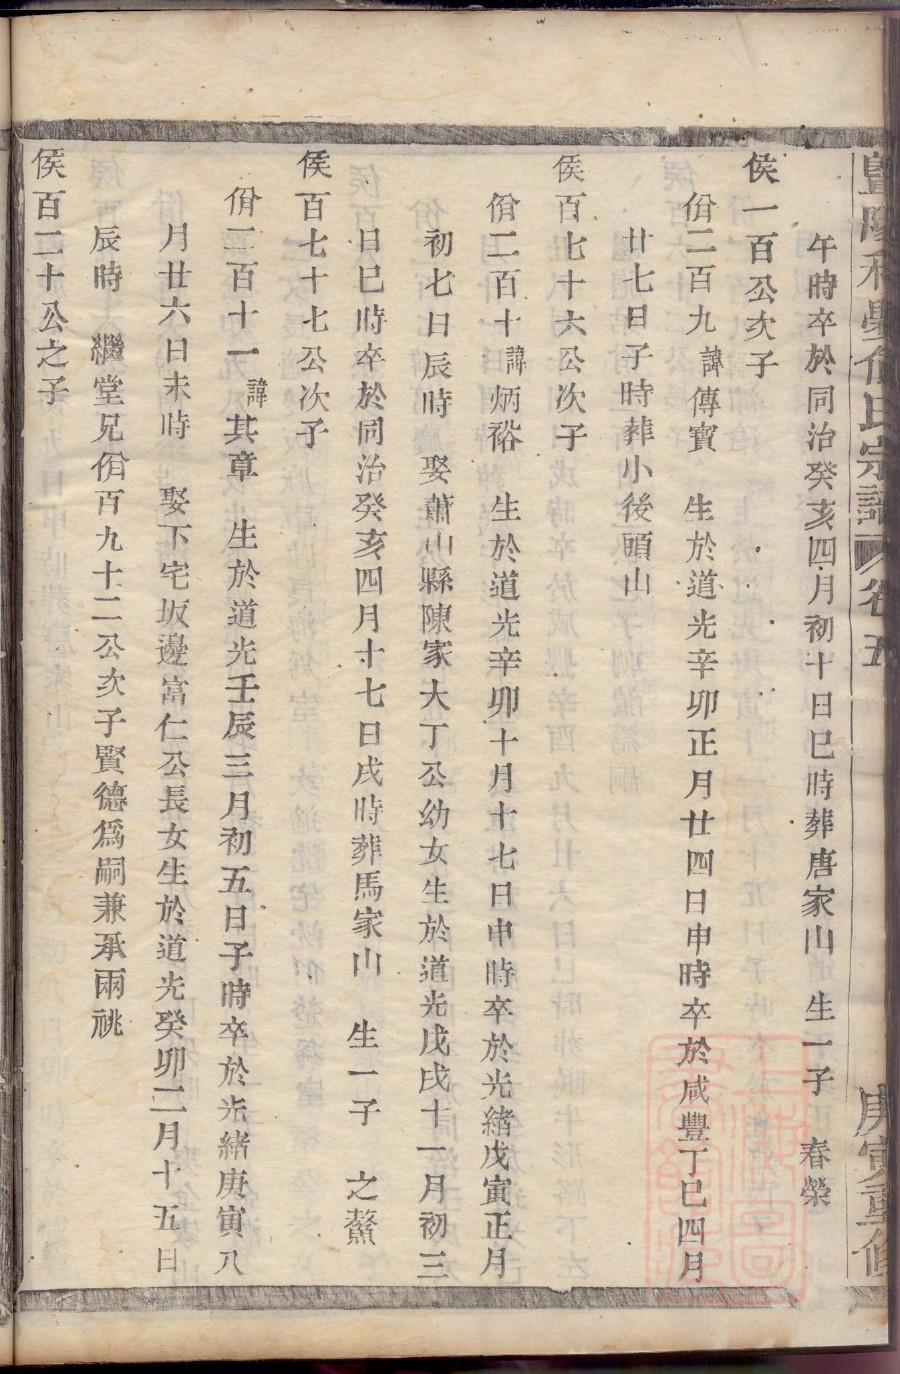 宗譜 卷五 庚寅重修
午時卒於同治癸亥四月初十日巳時葬唐家山 生一子 春榮
侯一百公次子
佾二百九諱傳寶 生於道光辛卯正月廿四日申時卒於咸豐丁巳四月
廿七日子時葬小後頭山
侯百七十六公次子
佾二百十諱炳裕 生於道光辛卯十月十七日申時卒於光緒戊寅正月
初七日辰時 娶蕭山縣陳家大丁公幼女生於道光戊戌十一月初三
日巳時卒於同治癸亥四月十七日戌時葬馬家山 生一子 之鰲
侯百七十七公次子
佾二百十一諱其章 生於道光壬辰三月初五日子時卒於光緒庚寅八
月廿六日未時 娶下宅坂邊富仁公長女生於道光癸卯二月十五日
辰時 繼堂兄佾百九十二公次子賢德爲嗣兼承兩祧
侯百二十公之子